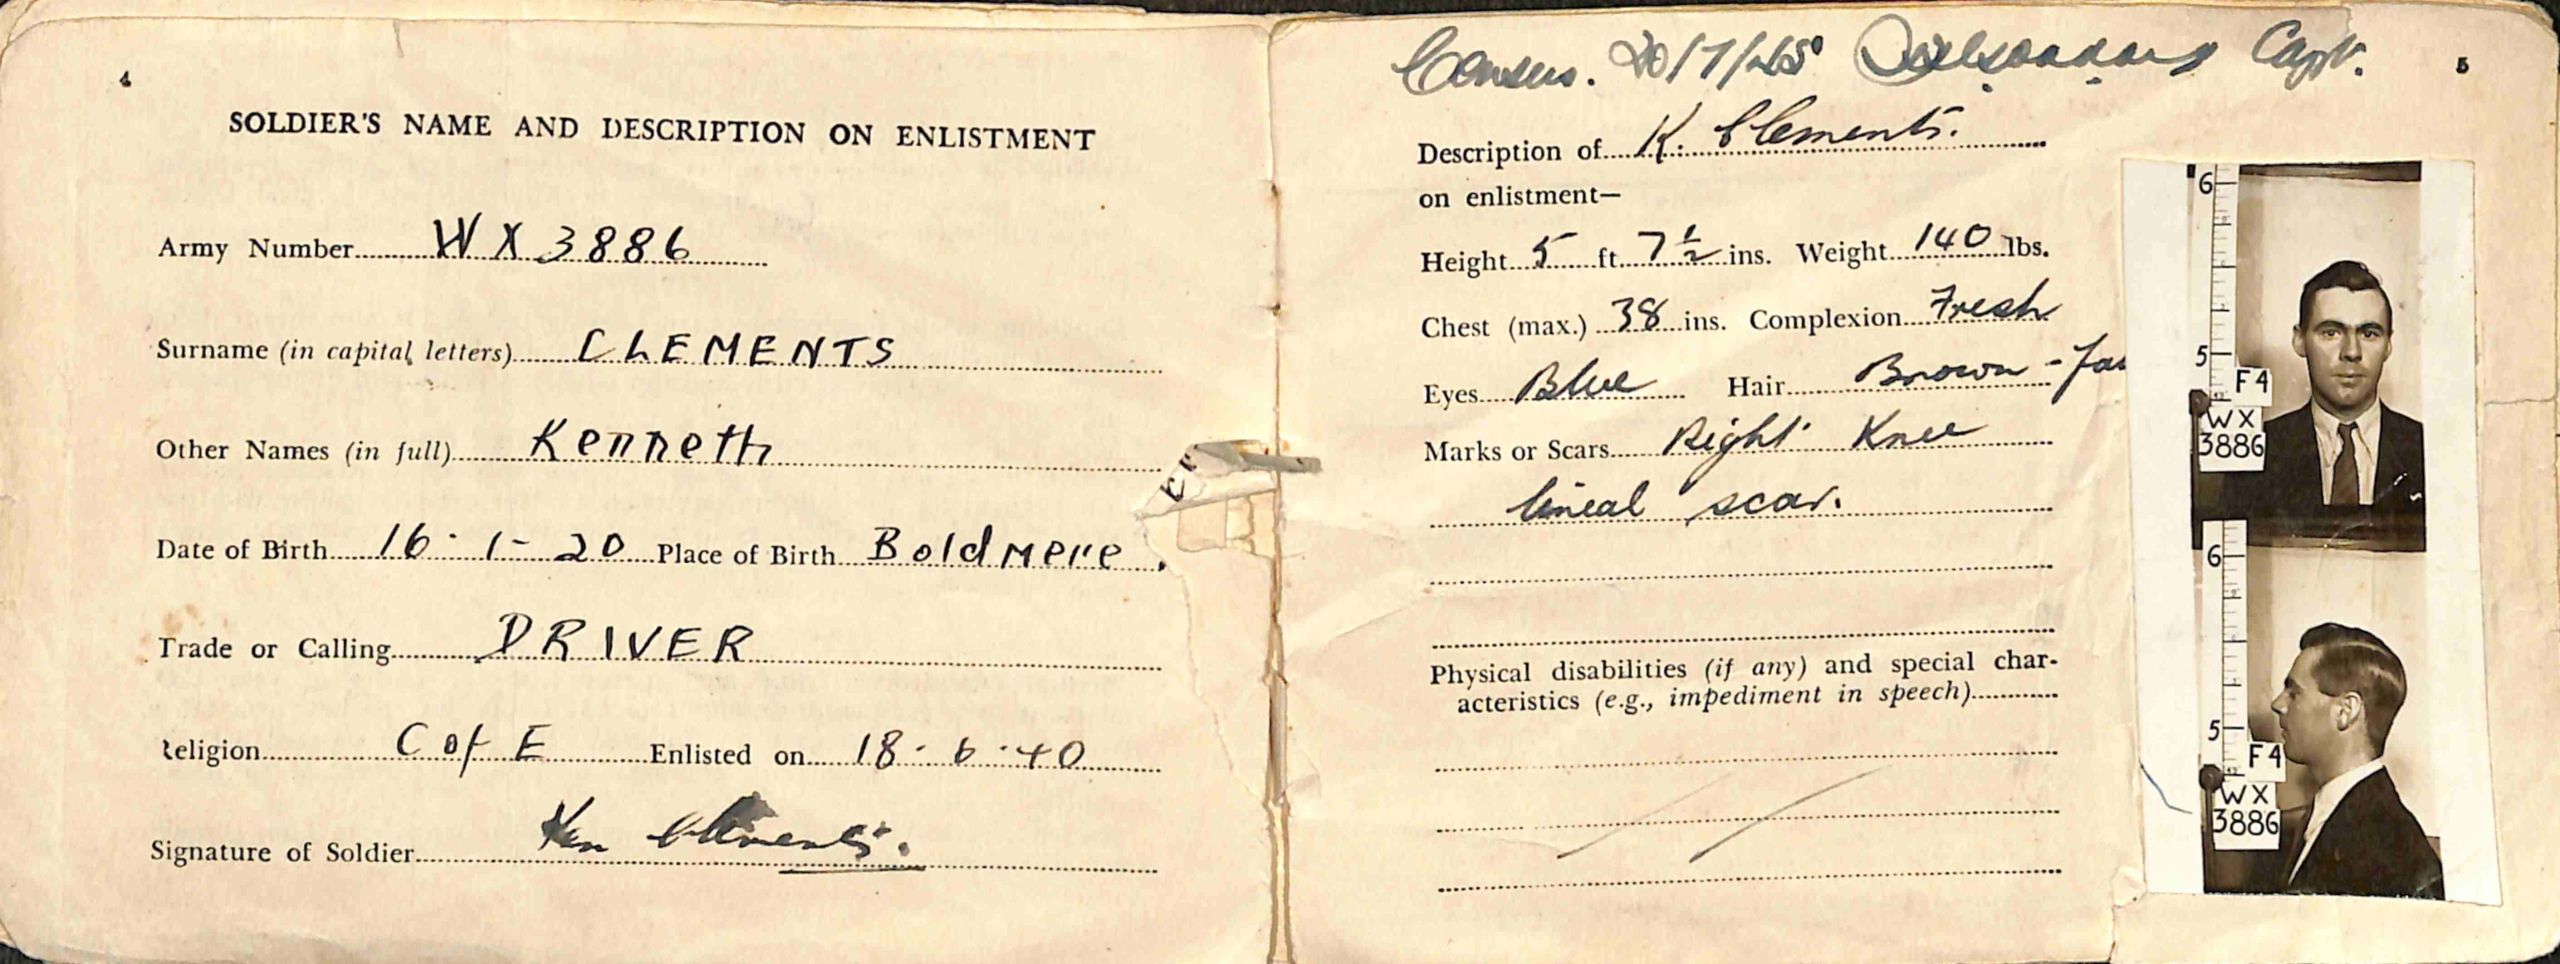 4
SOLDIER'S NAME AND DESCRIPTION ON ENLISTMENT
Army Number WX3886
Surname (in capital letters) CLEMENTS
Other Names (in full) Kenneth
Date of Birth 16-1-20 Place of Birth Boldmere.
Trade or Calling DRIVER
Religion C of E Enlisted on 18.6.40
Signature of Soldier Ken Clements.
Census. 20/7/45 Capt.
5
Description of K. Clements.
on enlistment—
Height 5 ft 7½ ins. Weight 140 lbs.
Chest (max.) 38 ins. Complexion Fresh
Eyes Blue Hair Brown -
Marks or Scars Right Knee
lineal scar.
Physical disabilities (if any) and special char-
acteristics (e.g., impediment in speech)
6
5
F4
WX
3886
6
5
F4
WX
3886